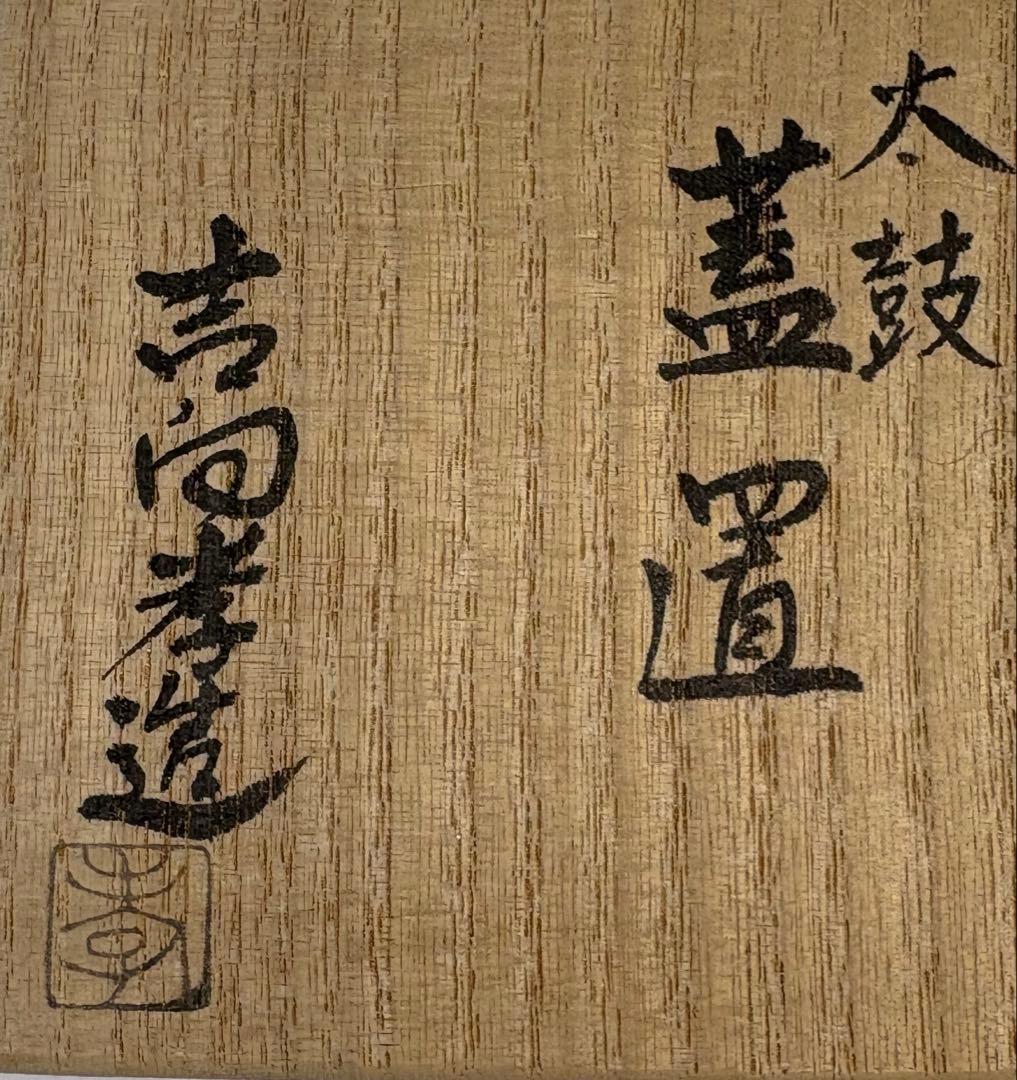 太鼓
蓋置
吉向孝造